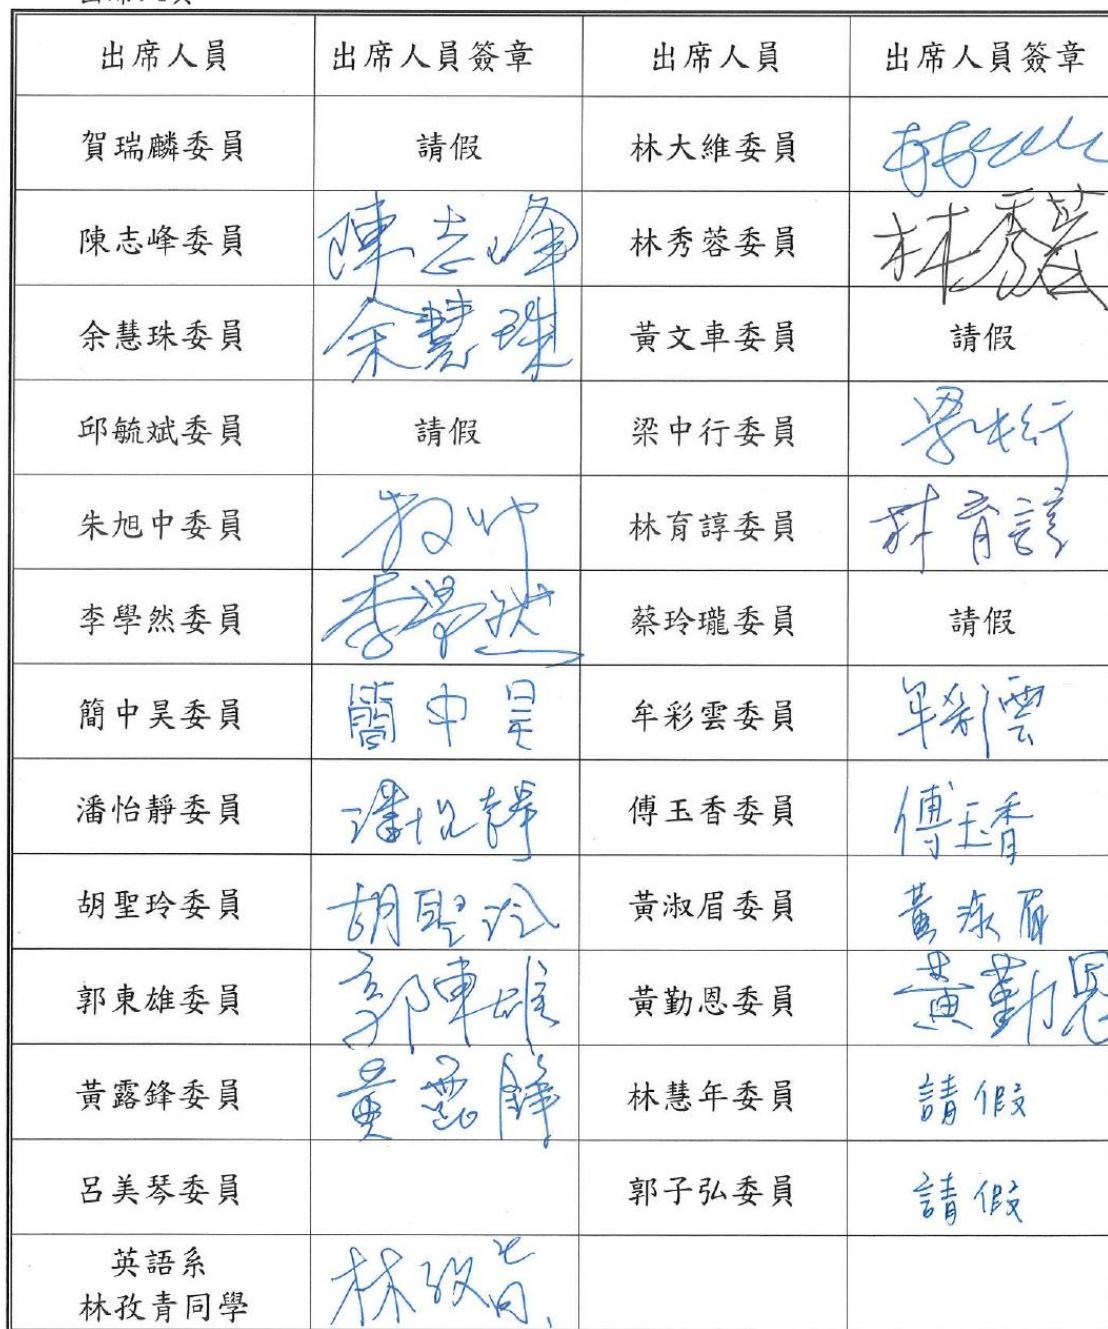 出席人員
出席人員 出席人員簽章 出席人員 出席人員簽章
賀瑞麟委員 請假 林大維委員
陳志峰委員 陳志峰 林秀蓉委員 林秀蓉
余慧珠委員 余慧珠 黃文車委員 請假
邱毓斌委員 請假 梁中行委員 梁中行
朱旭中委員 林育諄委員 林育諄
李學然委員 李學然 蔡玲瓏委員 請假
簡中昊委員 簡中昊 牟彩雲委員 牟彩雲
潘怡靜委員 潘怡靜 傅玉香委員 傅玉香
胡聖玲委員 胡聖玲 黃淑眉委員 黃淑眉
郭東雄委員 郭東雄 黃勤恩委員 黃勤恩
黃露鋒委員 黃露鋒 林慧年委員 請假
呂美琴委員 郭子弘委員 請假
英語系
林孜青同學 林孜青